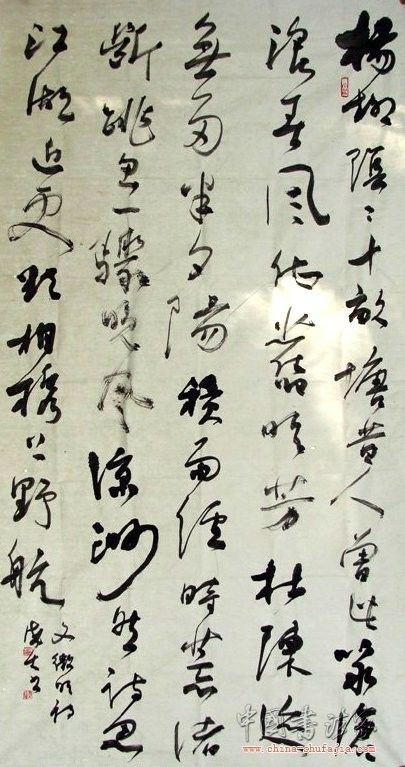 楊柳陰〻十畝塘昔人曾此詠滄
浪春風依舊吹芳杜陳迹
無多半夕陽積雨經時荒渚
斷跳魚一聚晚風涼渺然詩思
江湖近更欲相攜上野航
文徵明詩
www.china-shufajia.com